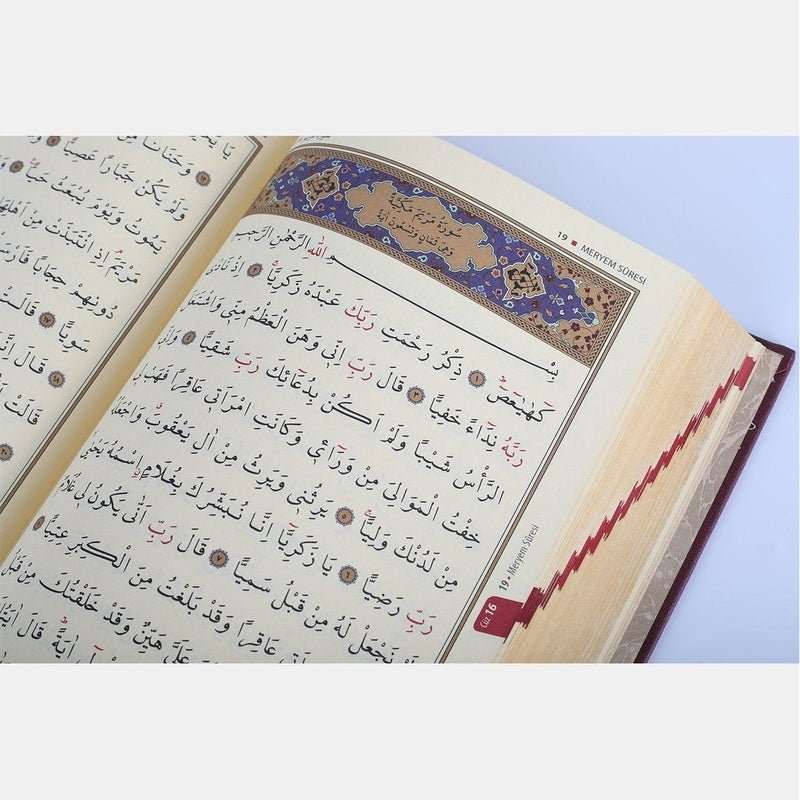 19 ▪ MERYEM SÛRESİ
سُورَةُ مَرْيَمَ مَكِّيَّةٌ
وَهِيَ ثَمَانٍ وَتِسْعُونَ اٰيَةً
بِسْمِ اللّٰهِ الرَّحْمٰنِ الرَّحٖيمِ
كٓهٰيٰعٓصٓ ١ ذِكْرُ رَحْمَتِ رَبِّكَ عَبْدَهُ زَكَرِيَّا ٢ اِذْ نَادٰى
رَبَّهُ نِدَٓاءً خَفِيًّا ٣ قَالَ رَبِّ اِنّٖي وَهَنَ الْعَظْمُ مِنّٖي وَاشْتَعَلَ
الرَّأْسُ شَيْبًا وَلَمْ اَكُنْ بِدُعَٓائِكَ رَبِّ شَقِيًّا ٤ وَاِنّٖي
خِفْتُ الْمَوَالِيَ مِنْ وَرَٓاءٖي وَكَانَتِ امْرَاَتٖي عَاقِرًا فَهَبْ لٖي
مِنْ لَدُنْكَ وَلِيًّا ٥ يَرِثُنٖي وَيَرِثُ مِنْ اٰلِ يَعْقُوبَ وَاجْعَلْهُ
رَبِّ رَضِيًّا ٦ يَا زَكَرِيَّٓا اِنَّا نُبَشِّرُكَ بِغُلَامٍ اِسْمُهُ يَحْيٰى
لَمْ نَجْعَلْ لَهُ مِنْ قَبْلُ سَمِيًّا ٧ قَالَ رَبِّ اَنّٰى يَكُونُ لٖي غُلَامٌ
عَاقِرًا وَقَدْ بَلَغْتُ مِنَ الْكِبَرِ عِتِيًّا ٨
عَلَيَّ هَيِّنٌ وَقَدْ خَلَقْتُكَ مِنْ قَبْلُ
قَالَ اٰيَتُكَ
19 • Meryem Sûresi
Cüz 16
وَحَنَانًا مِنْ
وَلَمْ يَكُنْ جَبَّارًا عَصِيًّا ١٤
يَمُوتُ وَيَوْمَ يُبْعَثُ حَيًّا
مَرْيَمَ اِذِ انْتَبَذَتْ مِنْ اَهْلِهَا
دُونِهِمْ حِجَابًا فَاَرْسَلْنَا
سَوِيًّا ١٧ قَالَتْ
١٨ قَالَ اِنَّمَا
قَالَتْ